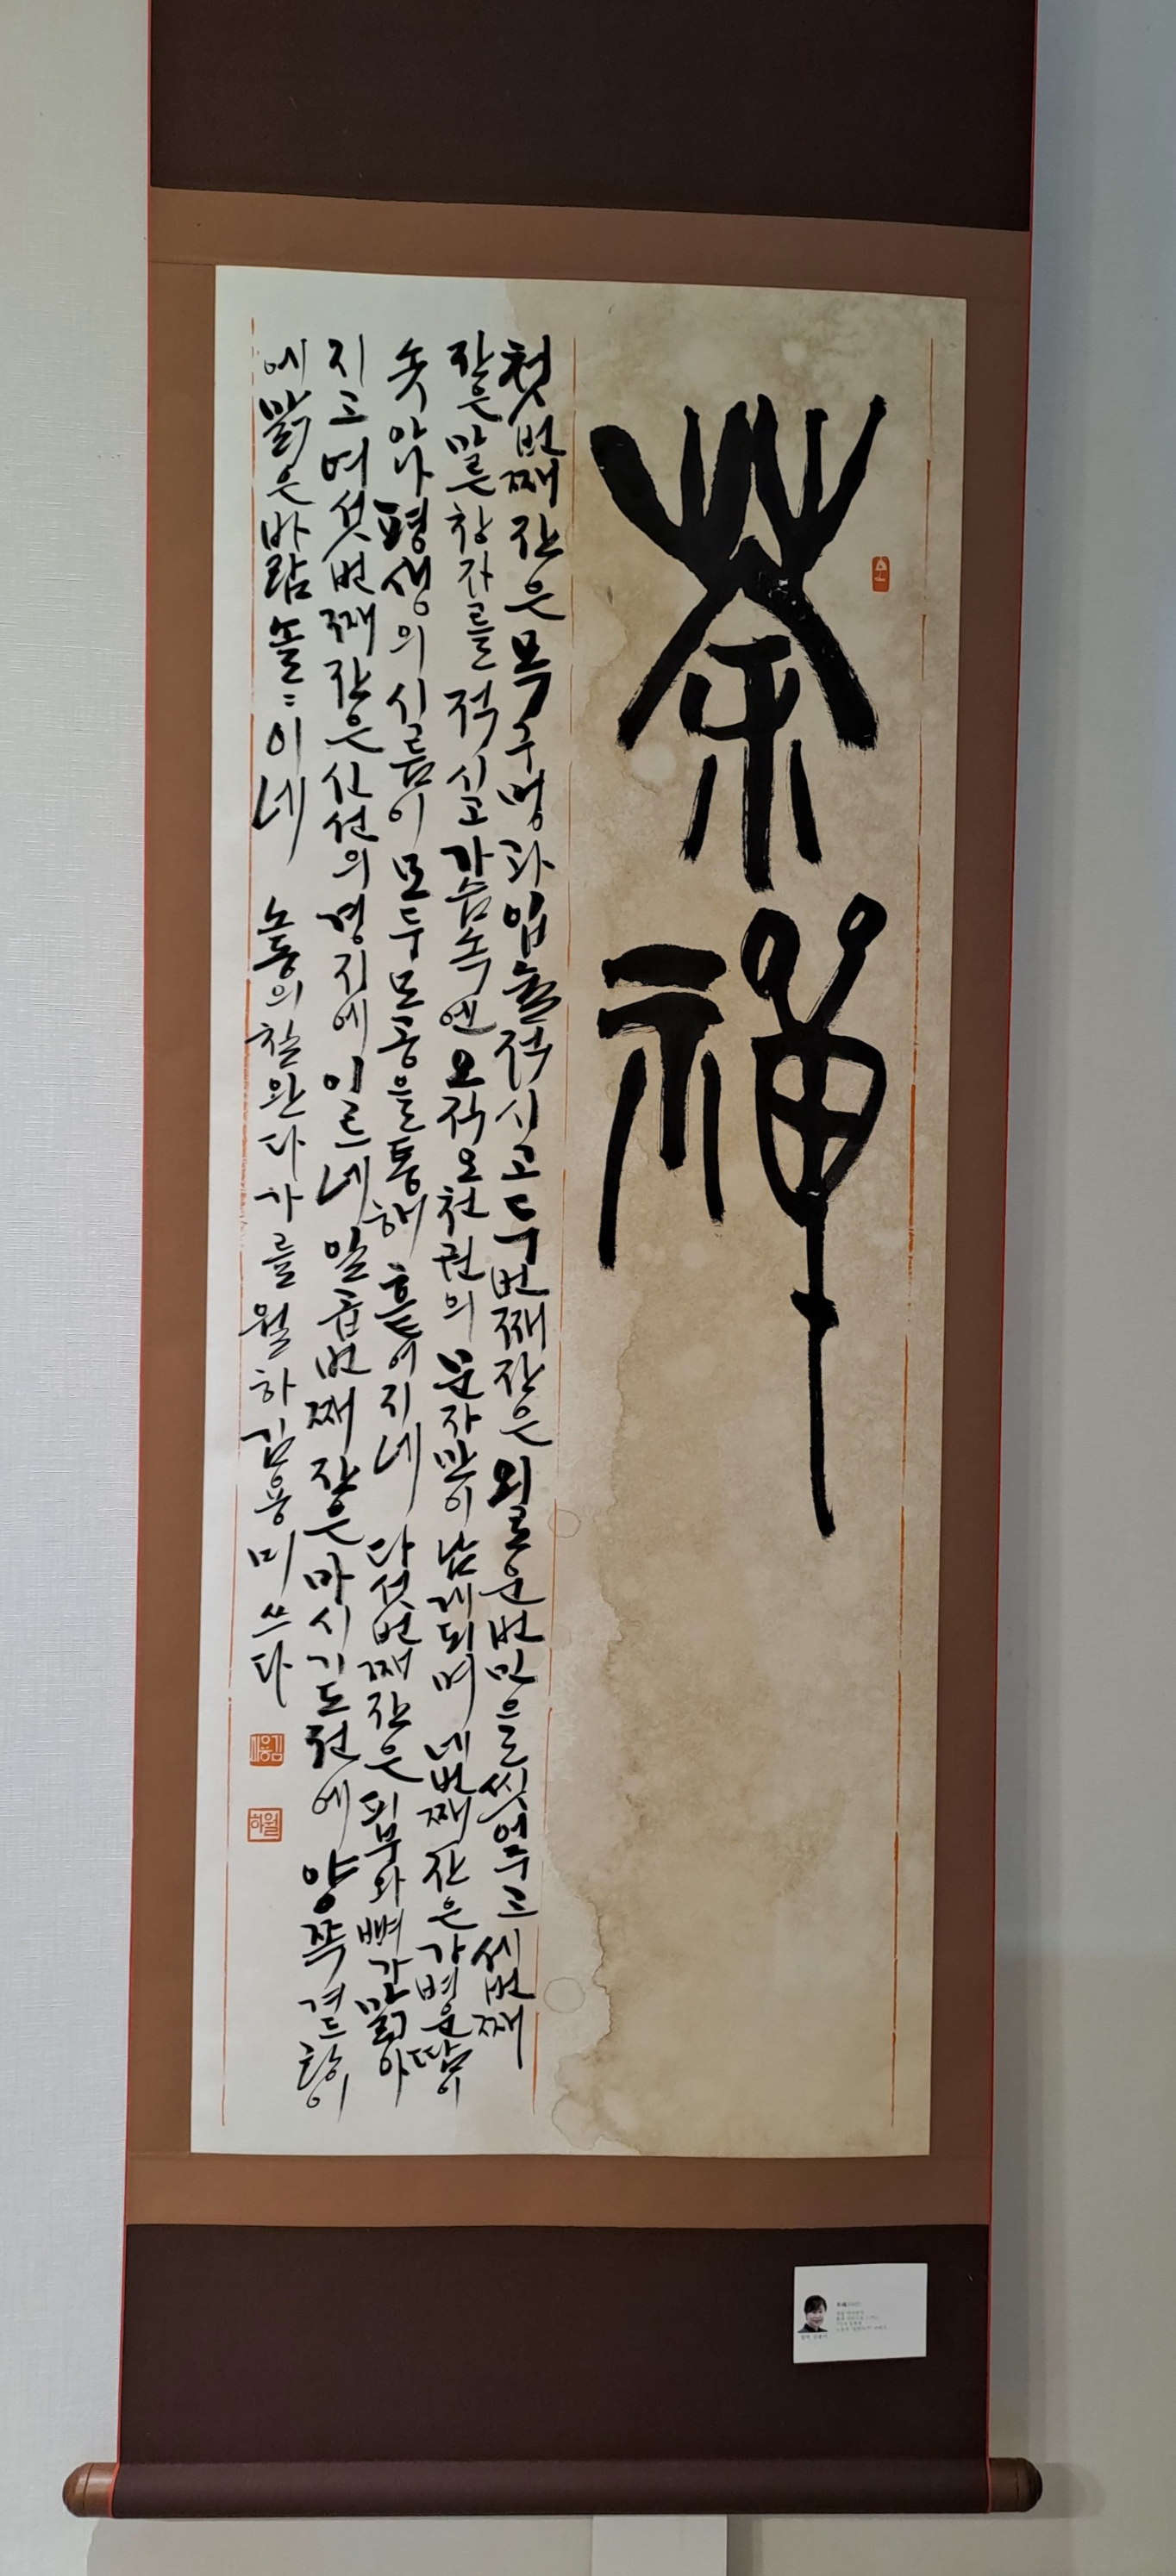 茶
禅
첫번째 잔은 목구멍과 입술 적시고 두번째 잔은 외로운 번민을 씻어주고 세번째
잔은 마른 창자를 적시고 가슴속엔 오직 오천권의 문자만이 남게되며 네번째 잔은 가벼운 땀이
솟아나 평생의 시름이 모두 모공을 통해 흩어지네 다섯번째 잔은 피부와 뼈가 맑아
지고 여섯번째 잔은 신선의 경지에 이르네 일곱번째 잔은 마시기도 전에 양쪽 겨드랑이
에 맑은 바람 솔〃이네 노동의 칠완다가를 월하 김용미 쓰다
김용미
월하